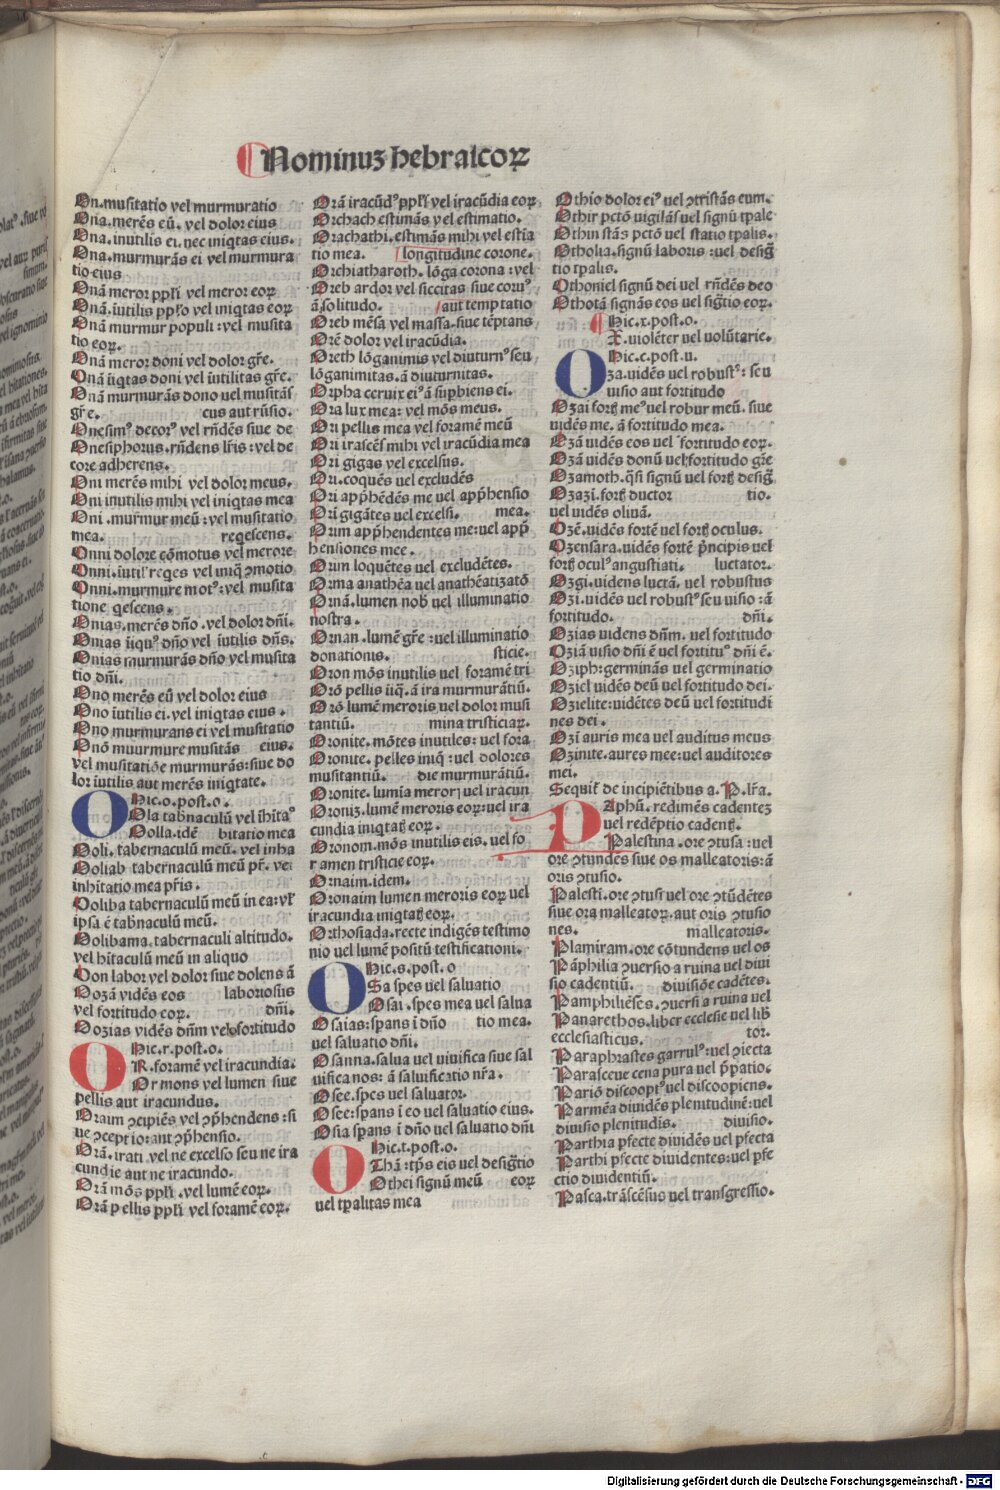 Nominuʒ hebraicoꝝ
On.musitatio vel murmuratio
Ona.merēs eū. vel dolor eius
Ona.inutilis ei.nec iniqtas eius.
Ona.murmurās ei vel murmura
tio eius
Onā meror ppl̄i vel meror eoꝝ
Onā.iutilis ppl̄o vel iniqtas eoꝝ
Onā murmur populi:vel musita
tio eoꝝ.
Onā meror doni vel dolor gr̄e.
Onā iīqtas doni vel iūtilitas gr̄e.
Onā murmurās dono uel musitās
gr̄e. cus aut rn̄sio.
Onesimꝰ decorꝰ vel rn̄dēs siue de
Onesiphorus.rn̄dens lr̄is:vel de
core adherens.
Oni merēs mihi vel dolor meus.
Oni inutilis mihi vel iniqtas mea
Oni.murmur meū:vel musitatio
mea. reqescens.
Onni dolore cōmotus vel merore
Onni.murmure motꝰ:vel musita
tione qescens.
Onias.merēs dn̄o.vel dolor dn̄i.
Onias iīquꝰ dn̄o vel iutilis dn̄s.
Onias murmurās dn̄o vel musita
tio dn̄i.
Ono merēs eū vel dolor eius
Ono iutilis ei.vel iniqtas eius.
Ono murmurans ei vel musitatio
Onō muurmure musitās eius.
vel musitatiōe murmurās:siue do
lor iutilis aut merēs iniqtate.
Hic.o.post.o.
Ola tabnaculū vel ihitaꝰ
Oolla.idē bitatio mea
Ooli.tabernaculū meū.vel inha
Ooliab tabernaculū meū pr̄.vel
inhitatio mea pr̄is.
Ooliba tabernaculū meū in ea:vl̓
ipsa ē tabnaculū meū.
Oolibama.tabernaculi altitudo.
vel hitaculū meū in aliquo
Oon labor vel dolor siue dolens ā
Oozā vidēs eos laboriosus
vel fortitudo eoꝝ. dn̄i.
Oozias vidēs dn̄m vel fortitudo
Hic.r.post.o.
R.foramē vel iracundia.
Or mons vel lumen siue
pellis aut iracundus.
Oraim ꝯcipiēs vel ꝯp̄hendens:si
ue ꝯceptio:aut ꝯp̄hensio.
Orā.irati.vel ne excelso seu ne ira
cundie aut ne iracundo.
Orā mōs ppl̄i.vel lumē eoꝝ.
Orā pellis ppl̄i vel foramē eoꝝ.
Orā iracūdꝰ ppl̄i vel iracūdia eoꝝ
Orchach estimās vel estimatio.
Orachathi.estimās mihi vel estia
tio mea. longitudine corone.
Orchiatharoth.lōga corona:vel
Oreb ardor vel siccitas siue coruꝰ
ā solitudo. aut temptatio
Oreb mēsa vel massa.siue tēptans
Orē dolor vel iracūdia.
Oreth lōganimis vel diuturnꝰ seu
lōganimitas.ā diuturnitas.
Orpha ceruix eiꝰ ā suphiens ei.
Ora lux mea:vel mōs meus.
Ori pellis mea vel foramē meū
Ori irascēs mihi vel iracūdia mea
Ori gigas vel excelsus.
Ori.coquēs uel excludēs
Ori app̄hēdēs me uel app̄hensio
Ori gigātes uel excelsi. mea.
Orim app̄hendentes me:uel app̄
hensiones mee.
Orim loquētes uel excludētes.
Orma anathēa uel anathēatizatō
Ornā.lumen nob̄ uel illuminatio
nostra.
Ornan.lumē gr̄e:uel illuminatio
donationis. sticie.
Oron mōs inutilis uel foramē tri
Orō pellis iīq.ā ira murmurātiū.
Orō lumē meroris uel dolor musi
tantiū. mina tristiciaꝝ.
Oronite.mōtes inutiles:uel fora
Oronite.pelles iniq:uel dolores
musitantiū. die murmurātiū.
Oronite.lumia meroꝝ uel iracun
Oroniʒ.lumē meroris eoꝝ:uel ira
cundia iniqtatꝫ eoꝝ.
Oronom.mōs inutilis eis.uel fo
ramen tristicie eoꝝ.
Ornaim.idem.
Oronaim lumen meroris eoꝝ uel
iracundia iniqtatꝫ eoꝝ.
Orthosiada.recte indigēs testimo
nio vel lumē positū testificationi.
Hic.s.post.o
Sa spes uel saluatio
Osai.spes mea uel salua
Osaias:spans ī dn̄o tio mea.
uel saluatio dn̄i.
Osanna.salua uel uiuifica siue sal
uifica nos:ā saluificatio nr̄a.
Osee.spes uel saluator.
Osee:spans ī eo uel saluatio eius.
Osia spans ī dn̄o uel saluatio dn̄i
Hic.t.post.o.
Thā:tp̄s eis uel desig̅tio
Othei signū meū eoꝝ
uel tpalitas mea
Othio dolor eiꝰ uel ꝯtristās eum.
Othir pctō uigilās uel signū tpale
Othin stās pctō uel statio tpalis.
Otholia.signū laboris:uel desig̅
tio tpalis.
Othoniel signū dei uel rn̄dēs deo
Othotā signās eos uel sig̅tio eoꝝ.
Hic.x.post.o.
X.violēter uel volūtarie.
Hic.c.post.u.
Oza.uidēs uel robustꝰ:seu
uisio aut fortitudo
Ozai fortꝫ meꝰ uel robur meū.siue
uidēs me.ā fortitudo mea.
Ozā uidēs eos uel fortitudo eoꝝ.
Ozā uidēs donū uel fortitudo gr̄e
Ozamoth.qsi signū uel fortꝫ desig̅
Ozazi.fortꝫ ductor tio.
uel uidēs oliuā.
Ozē.uidēs fortē uel fortꝫ oculus.
Ozensara.uidēs fortē p̄ncipis uel
fortꝫ oculꝰ angustiati. luctator.
Ozgi.uidens luctā.uel robustus
Ozi.uidēs uel robustꝰ seu uisio:ā
fortitudo. dn̄i.
Ozias uidens dn̄m.uel fortitudo
Oziā uisio dn̄i ē uel fortituꝰ dn̄i ē.
Oziph:germinās uel germinatio
Oziel uidēs deū uel fortitudo dei.
Ozielite:uidētes deū uel fortitudi
nes dei.
Ozi auris mea uel auditus meus
Ozinite.aures mee:uel auditores
mei.
Sequit̄ de incipiētibus a.P.lr̄a.
Paphū.redimēs cadenteʒ
uel redēptio cadentꝫ.
Palestina.ore ꝯtusa:uel
ore ꝯtundēs siue os malleatoris:ā
oris ꝯtusio.
Palesti.ore ꝯtusi uel ore ꝯtūdētes
siue ora malleatoꝝ.aut oris ꝯtusio
nes. malleatoris.
Plamiram.ore cōtundens uel os
Pāphilia ꝯuersio a ruina uel diui
sio cadentiū. diuisiōe cadētes.
Pamphiliēses.ꝯuersi a ruina uel
Panarethos.liber ecclesie uel lib̄
ecclesiasticus. tor.
Paraphrastes garrulꝰ:uel ꝓiecta
Parasceue cena pura uel p̄patio.
Pariō discooptꝰ uel discoopiens.
Parmēa diuidēs plenitudinē:uel
diuisio plenitudis. diuisio.
Parthia pfecte diuidēs uel pfecta
Parthi pfecte diuidentes:uel pfe
ctio diuidentiū.
Pasca.trāscēsus uel transgressio.
Digitalisierung gefördert durch die Deutsche Forschungsgemeinschaft - DFG